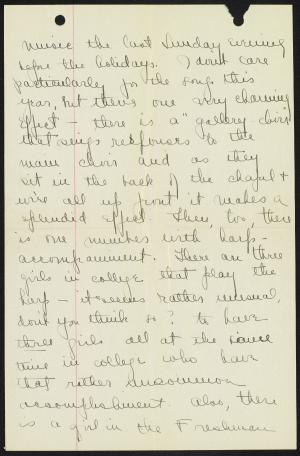 music the last Sunday evening
before the holidays. I don't care
particularly for the songs this
year, but there's one very charming
effect – there is a "gallery choir"
that sings responses to the
main choir and as they
sit in the back of the chapel &
we're all up front it makes a
splendid effect. Then, too, there
is one number with harp-
accompaniment. There are three
girls in college that play the
harp – it seems rather unusual,
don't you think so? to have
three girls all at the same
time in college who have
that rather uncommon
accomplishment. Also, there
is a girl in the Freshman